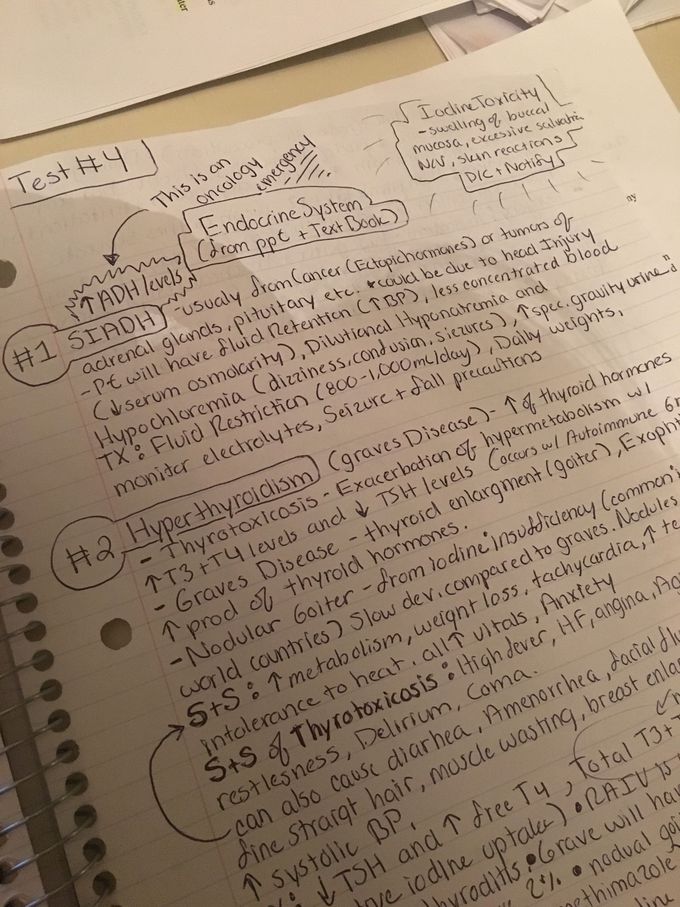 Test #4
This is an
oncology
emergency
Iodine Toxicity
- swelling of buccal
mucosa, excessive salivatin
N/V, skin reactions
D/C + Notify
Endocrine System
(from ppt + Text Book)
↑ADH levels
#1 SIADH - usualy from Cancer (Ectopic hormones) or tumors of
adrenal glands, pituitary etc. *could be due to head Injury
- Pt will have fluid Retention (↑BP), less concentrated blood
(↓ serum osmolarity), Dilutional Hyponatremia and
Hypochloremia (dizziness, confusion, siezures), ↑ spec. gravity urine
TX: Fluid Restriction (800-1,000mL/day), Daily weights,
monitor electrolytes, Seizure + fall precautions
#2 Hyperthyroidism (graves Disease) - ↑ of thyroid hormones
- Thyrotoxicosis - Exacerbation of hypermetabolism w/
↑T3+T4 levels and ↓ TSH levels (occurs w/ Autoimmune
- Graves Disease - thyroid enlargment (goiter),
↑ prod of thyroid hormones.
- Nodular Goiter - from iodine insufficiency (common
world countries) Slow dev. compared to graves. Nodules
S+S: ↑ metabolism, weight loss, tachycardia, ↑
intolerance to heat. all ↑ vitals, Anxiety
S+S of Thyrotoxicosis: High fever, HF, angina,
restlesness, Delirium, Coma.
can also cause diarhea, Amenorrhea, facial
fine straigt hair, muscle wasting, breast
↑ systolic BP.
↓ TSH and ↑ free T4, Total T3+
iodine uptake) • RAIU is
• Grave will
2% • nodual
methimazole